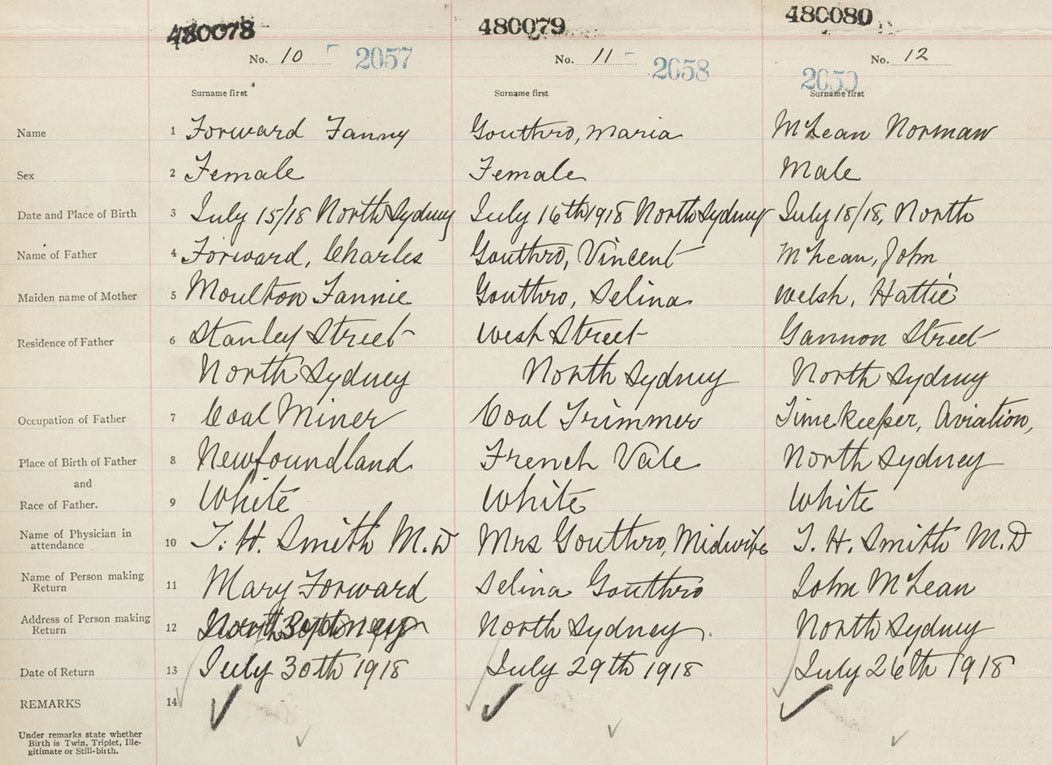 480078 480079 480080
No. 10 2057 No. 11 2058 No. 12
Surname first Surname first 2059 Surname first
Name 1 Forward Fanny Gouthro, Maria McLean Norman
Sex 2 Female Female Male
Date and Place of Birth 3 July 15/18 North Sydney July 16th 1918 North Sydney July 18/18, North
Name of Father 4 Forward, Charles Gouthro, Vincent McLean, John
Maiden name of Mother 5 Moulton Fannie Gouthro, Selina Welsh, Hattie
Residence of Father 6 Stanley Street West Street Gannon Street
North Sydney North Sydney North Sydney
Occupation of Father 7 Coal Miner Coal Trimmer Timekeeper, Aviation,
Place of Birth of Father 8 Newfoundland French Vale North Sydney
and
Race of Father. 9 White White White
Name of Physician in
attendance 10 T. H. Smith M.D Mrs Gouthro, Midwife T. H. Smith M.D
Name of Person making
Return 11 Mary Forward Selina Gouthro John McLean
Address of Person making
Return 12 North Sydney North Sydney
Date of Return 13 July 30th 1918 July 29th 1918 July 26th 1918
REMARKS 14
Under remarks state whether
Birth is Twin, Triplet, Ille-
gitimate or Still-birth.